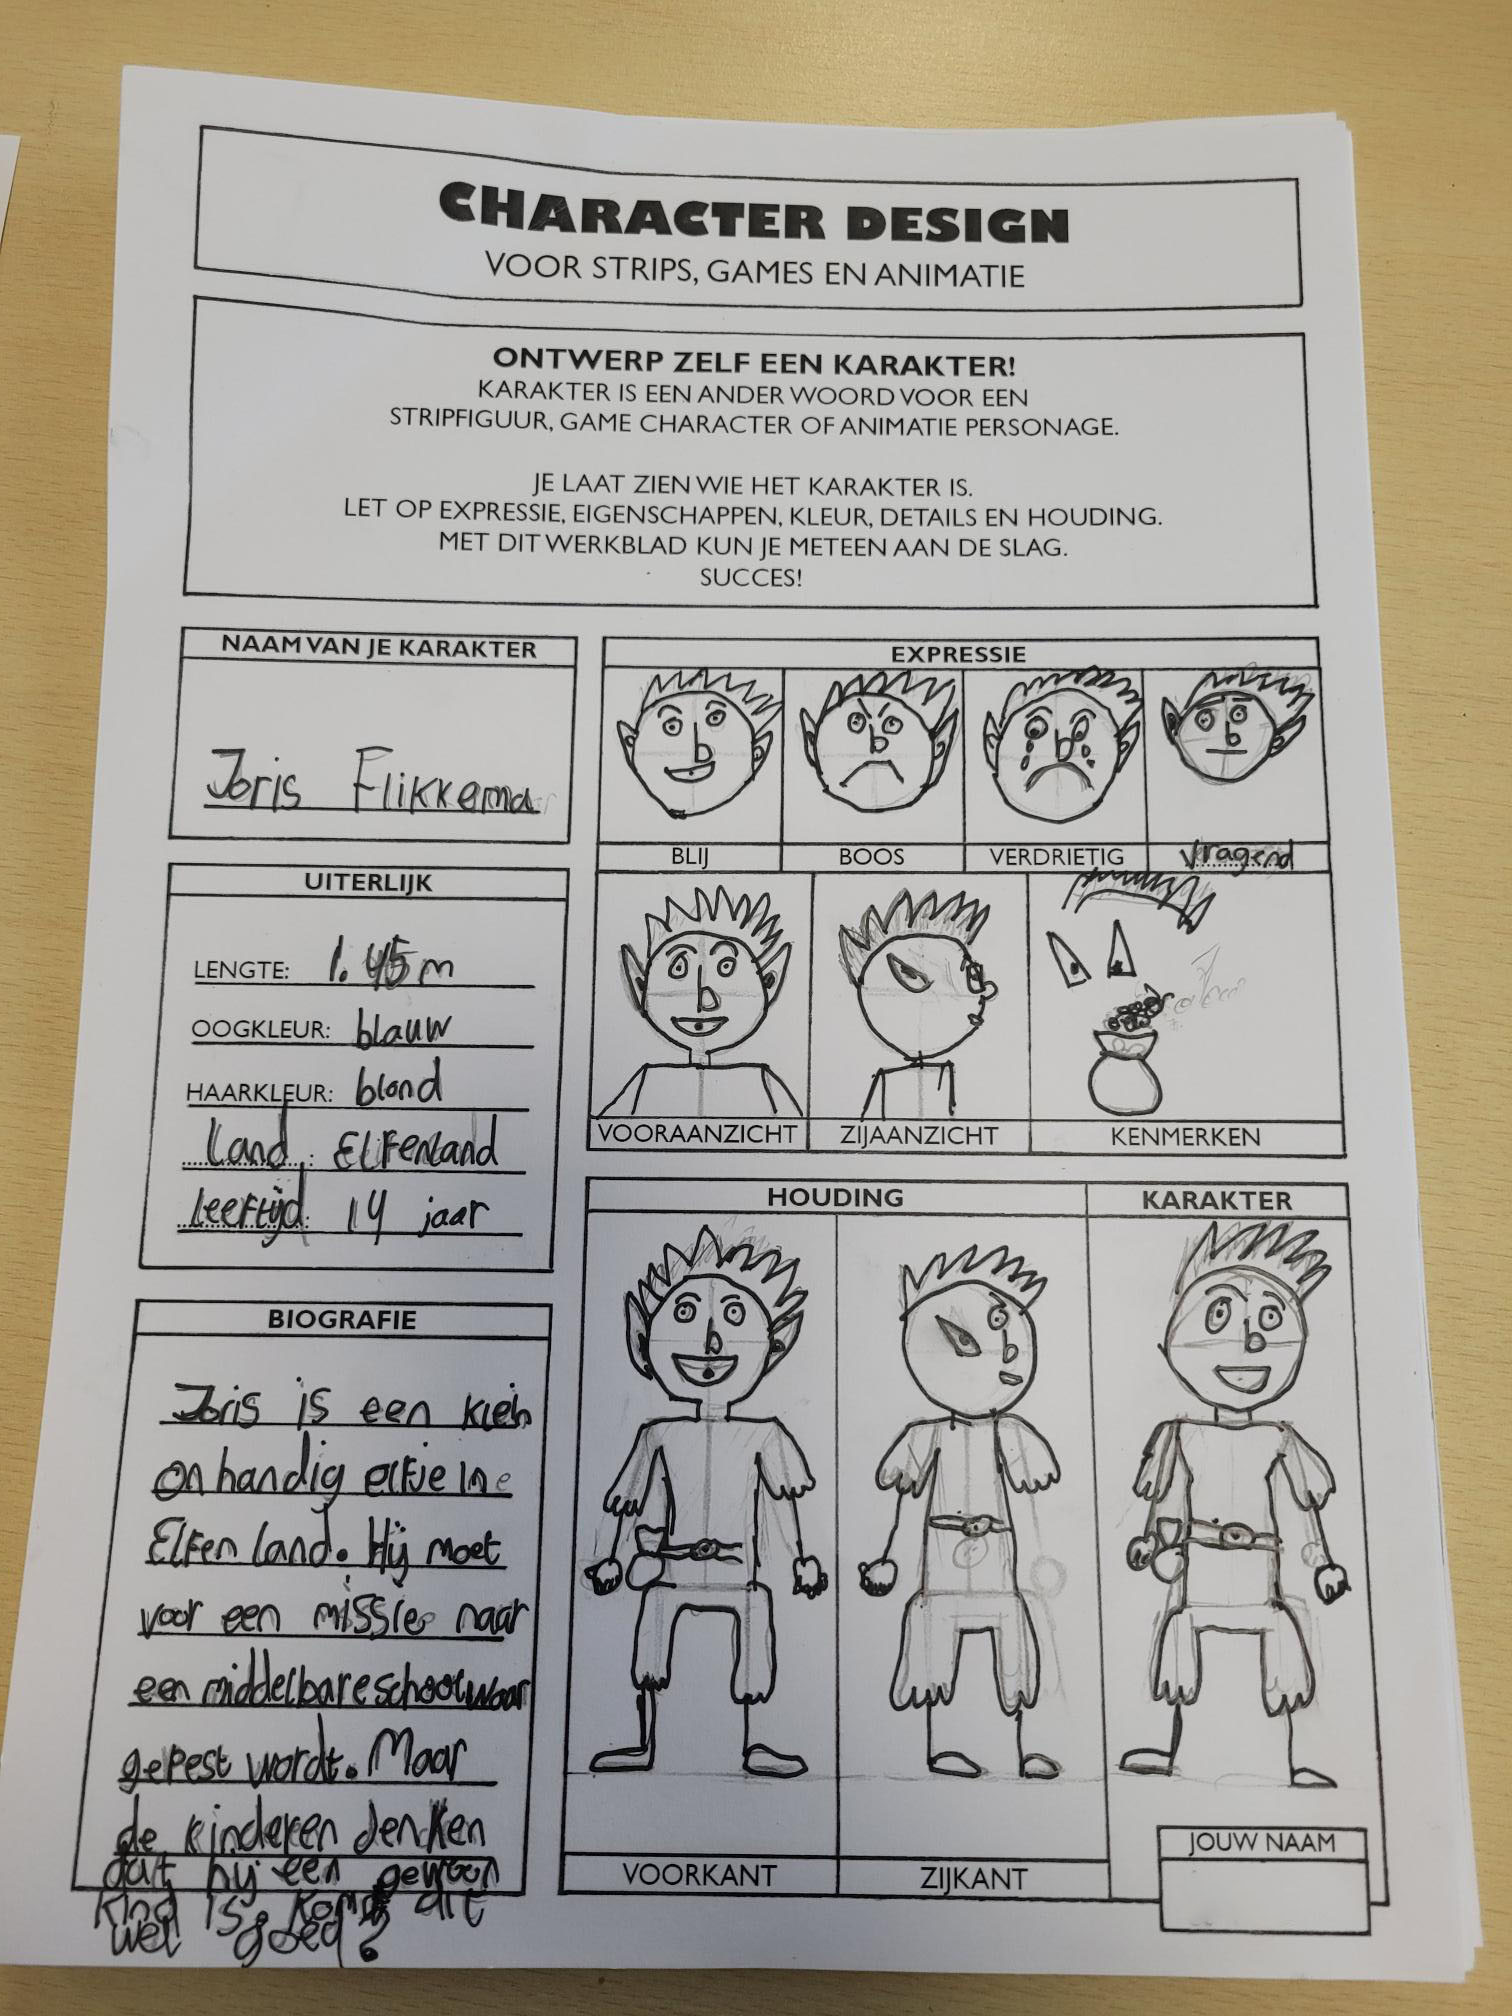 CHARACTER DESIGN
VOOR STRIPS, GAMES EN ANIMATIE
ONTWERP ZELF EEN KARAKTER!
KARAKTER IS EEN ANDER WOORD VOOR EEN
STRIPFIGUUR, GAME CHARACTER OF ANIMATIE PERSONAGE.
JE LAAT ZIEN WIE HET KARAKTER IS.
LET OP EXPRESSIE, EIGENSCHAPPEN, KLEUR, DETAILS EN HOUDING.
MET DIT WERKBLAD KUN JE METEEN AAN DE SLAG.
SUCCES!
NAAM VAN JE KARAKTER
Joris Flikkema
UITERLIJK
LENGTE: 1.45 m
OOGKLEUR: blauw
HAARKLEUR: blond
Land : Elfenland
leeftijd: 14 jaar
BIOGRAFIE
Joris is een klein
onhandig elfje in
Elfen land. Hij moet
voor een missie naar
een middelbareschool waar
gepest wordt. Maar
de kinderen denken
dat hij een gewoon
kind is. Komt dit
wel goed?
EXPRESSIE
BLIJ
BOOS
VERDRIETIG
vragend
VOORAANZICHT
ZIJAANZICHT
KENMERKEN
HOUDING
KARAKTER
VOORKANT
ZIJKANT
JOUW NAAM